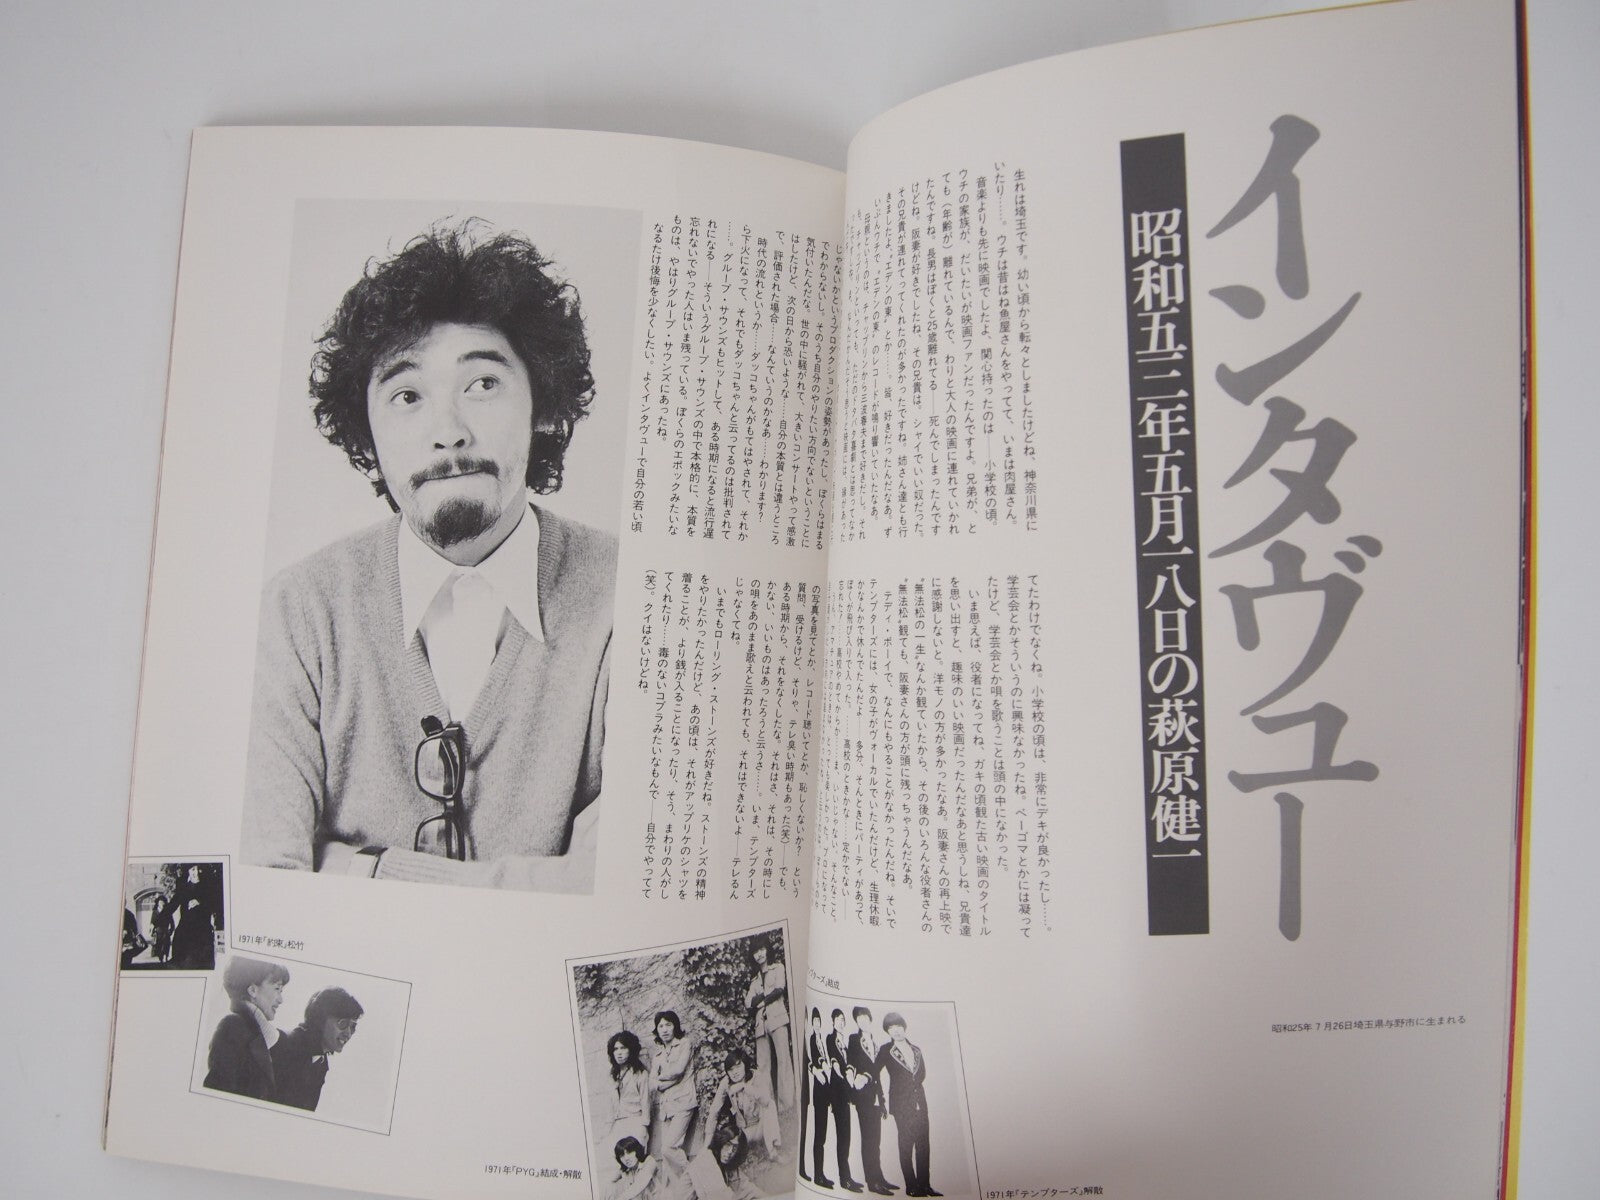 インタヴュー
昭和五三年五月一八日の萩原健一
生れは埼玉です。幼い頃から転々としましたけどね、神奈川県に
いたり……。ウチは昔はね魚屋さんをやってて、いまは肉屋さん。
音楽よりも先に映画でしたよ、関心持ったのは――小学校の頃。
ウチの家族が、だいたいが映画ファンだったんですよ。兄弟が、と
ても(年齢が)離れているんで、わりと大人の映画に連れていかれ
たんですね。長男はぼくと25歳離れてる――死んでしまったんです
けどね。阪妻が好きでしたね、その兄貴は。シャイでいい奴だった。
その兄貴が連れてってくれたのが多かったですね。姉さん達とも行
きましたよ、“エデンの東”とか……。皆、好きだったんだなあ。ず
いぶんウチで、“エデンの東”のレコードが鳴り響いていたなあ。
母親というのは、チャップリンから三波春夫まで好きだし。それ
てたわけでなくね。小学校の頃は、非常にデキが良かったし……。
学芸会とかそういうのに興味なかったね。ベーゴマとかには凝って
たけど、学芸会とか唄を歌うことは頭の中になかった。
いま思えば、役者になってね、ガキの頃観た古い映画のタイトル
を思い出すと、趣味のいい映画だったんだなあと思うしね、兄貴達
に感謝しないと。洋モノの方が多かったなあ。阪妻さんの再上映で
“無法松の一生”なんか観ていたから、その後のいろんな役者さんの
“無法松”観ても、阪妻さんの方が頭に残っちゃうんだなあ。
テディ・ボーイで、なんにもやることがなかったんだね。そいで
テンプターズには、女の子がヴォーカルでいたんだけど、生理休暇
かなんかで休んでたんだよ 多分、そんときにパーティがあって、
ぼくが飛び入りで入った。……高校のときかな……定かでない――
じゃないかというプロダクションの姿勢があったし、ぼくらはまる
でわからないし。そのうち自分のやりたい方向でないということに
気付いたんだな。世の中に騒がれて、大きいコンサートやって感激
はしたけど、次の日から恐いような……自分の本質とは違うところ
で、評価された場合……なんていうのかなあ……わかります?
時代の流れというか……ダッコちゃんがもてはやされて、それか
ら下火になって、それでもダッコちゃんと云ってるのは批判されて
……。グループ・サウンズもヒットして、ある時期になると流行遅
れになる――そういうグループ・サウンズの中で本格的に、本質を
忘れないでやった人はいま残っている。ぼくらのエポックみたいな
ものは、やはりグループ・サウンズにあったね。
なるたけ後悔を少なくしたい。よくインタヴューで自分の若い頃
の写真を見てとか、レコード聴いてとか、恥しくないか? という
質問、受けるけど、そりゃ、テレ臭い時期もあった(笑)――でも、
ある時期から、それをなくしたな。それはさ、それは、その時にし
かない、いいものはあったろうと云うさ……。いま、テンプターズ
の唄をあのまま歌えと云われても、それはできないよ――テレるん
じゃなくてね。
いまでもローリング・ストーンズが好きだね。ストーンズの精神
をやりたかったんだけど、あの頃は、それがアップリケのシャツを
着ることが、より銭が入ることになったり、そう、まわりの人がし
てくれたり……毒のないコブラみたいなもんで――自分でやってて
(笑)。クイはないけどね。
昭和25年7月26日埼玉県与野市に生まれる
ターズ」結成
1971年「テンプターズ」解散
1971年「PYG」結成・解散
1971年「約束」松竹